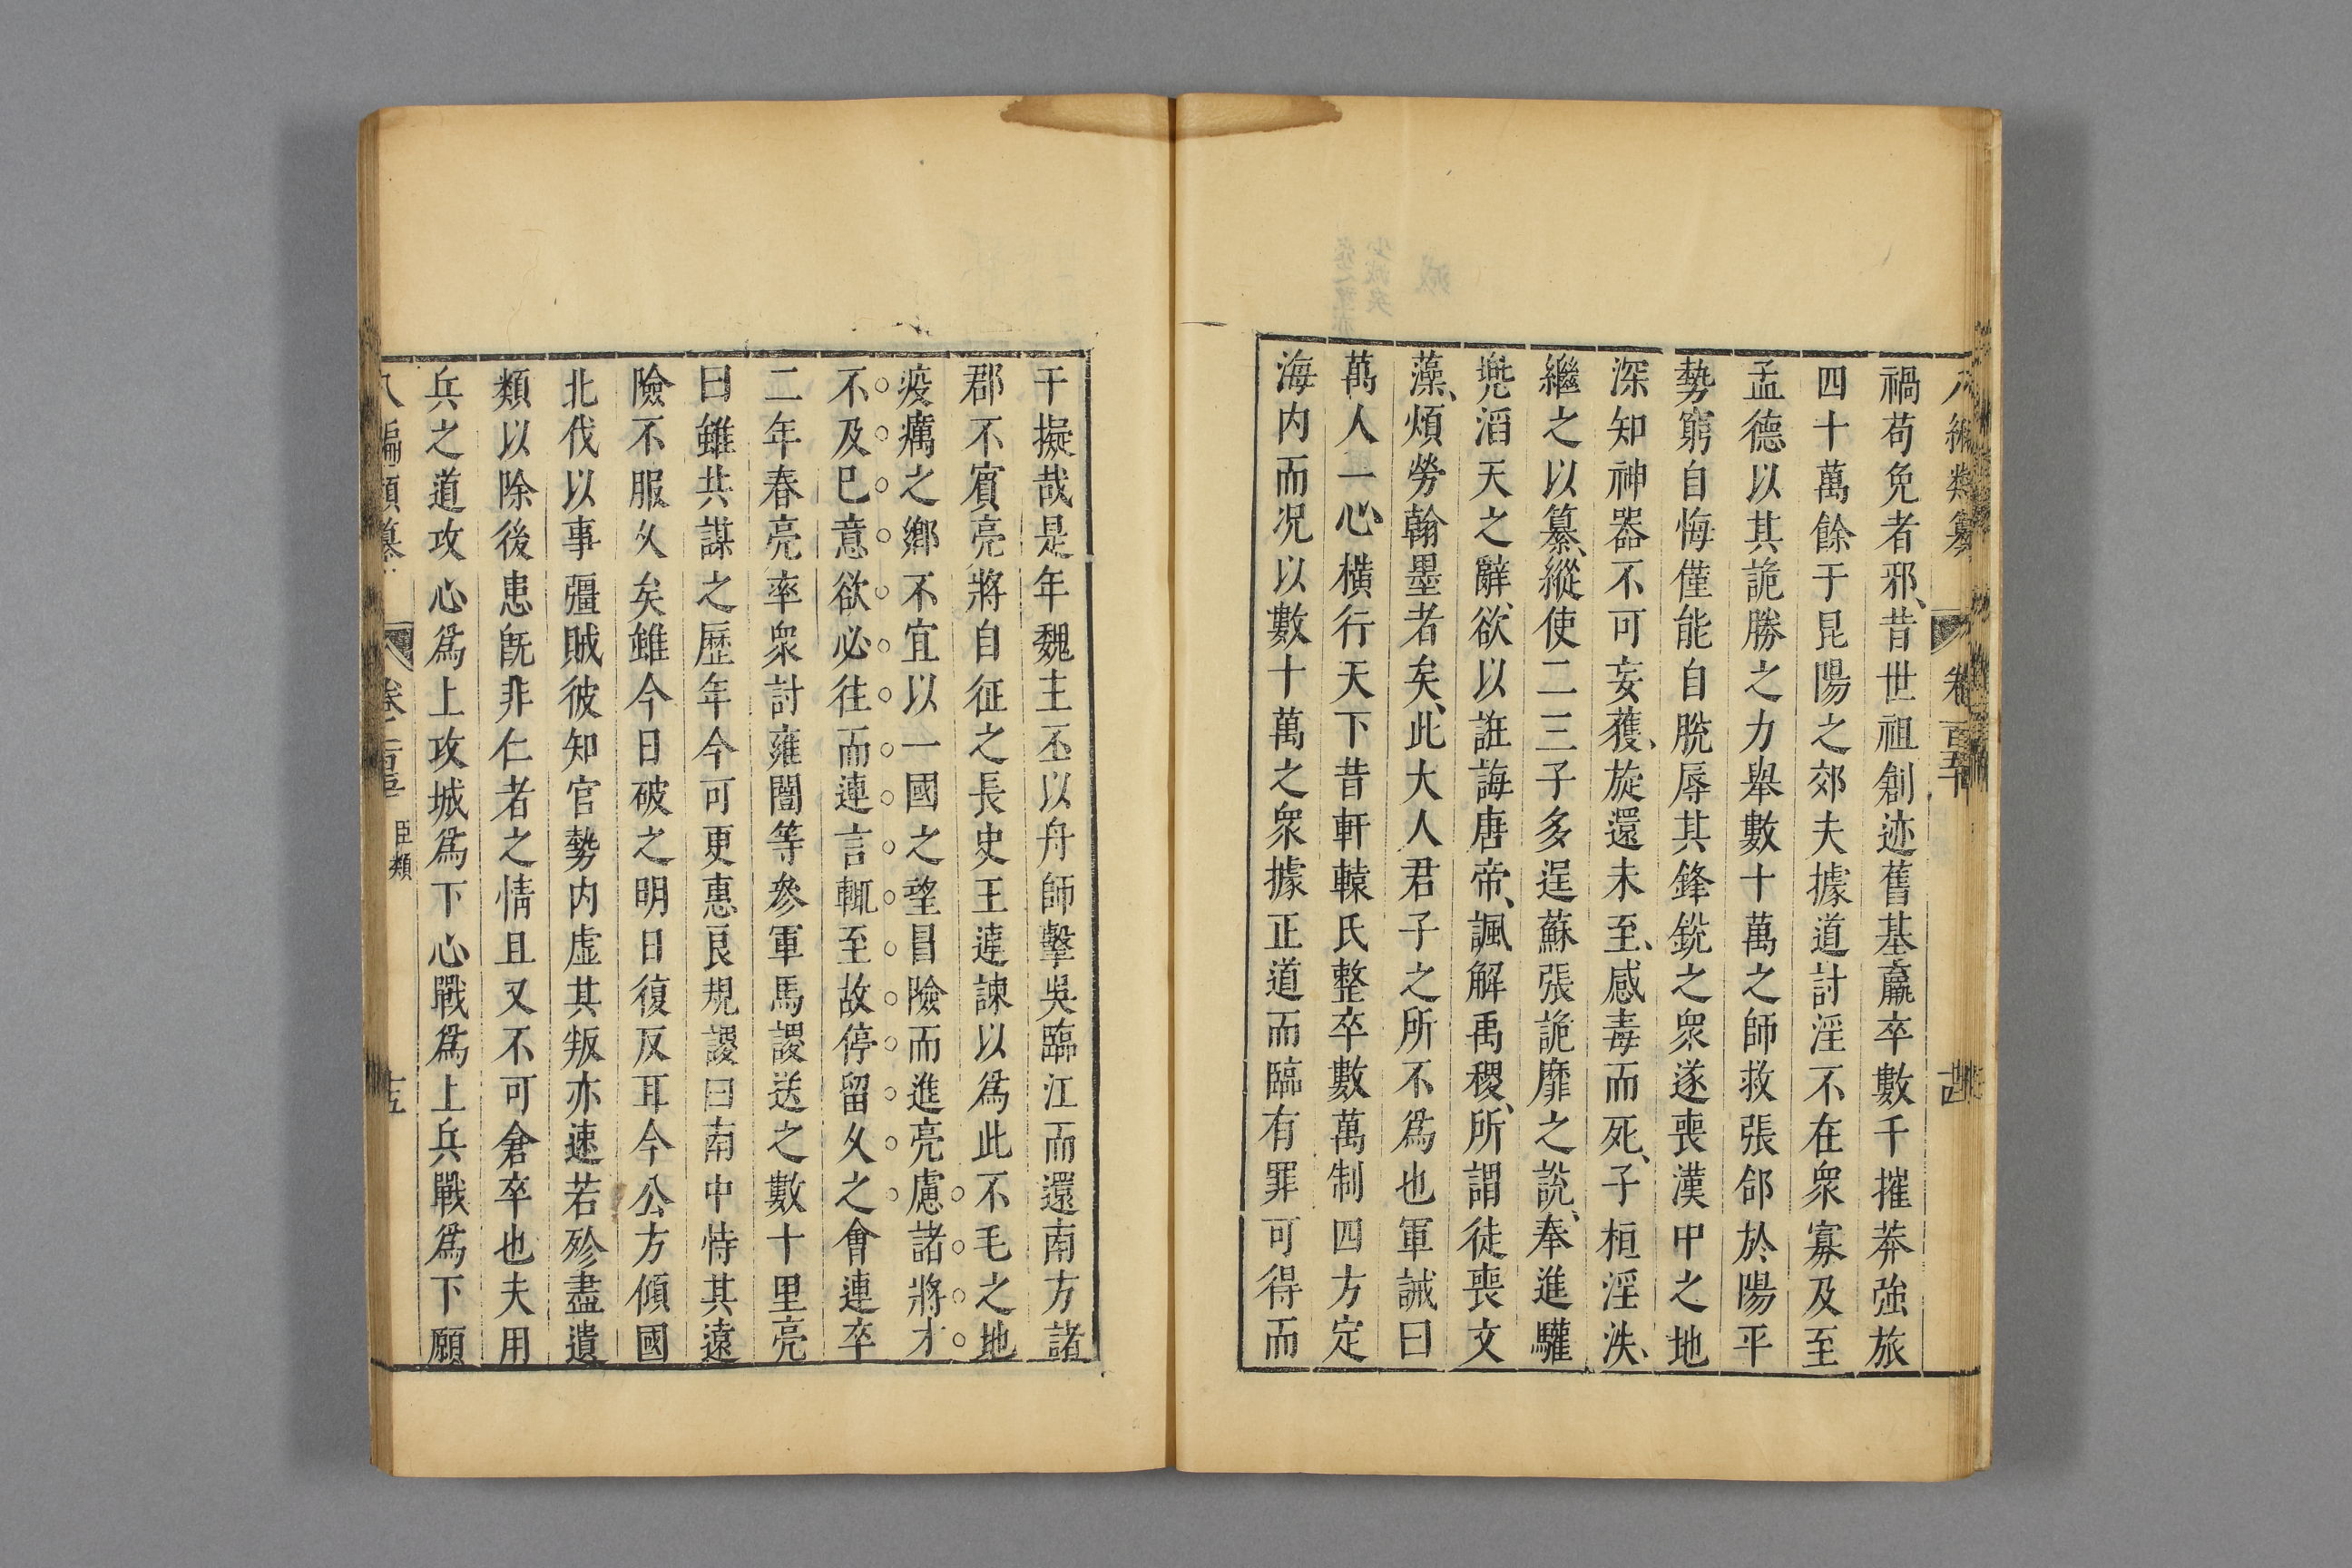 禍苟免者邪昔世祖創迹舊基羸卒數千摧莽強旅
四十萬餘于昆陽之郊夫據道討淫不在衆寡及至
孟德以其詭勝之力舉數十萬之師救張郃於陽平
勢窮自悔僅能自脫辱其鋒銳之衆遂喪漢中之地
深知神器不可妄獲旋還未至感毒而死子桓淫泆
繼之以簒縱使二三子多逞蘇張詭靡之說奉進驩
兠滔天之辭欲以誑誨唐帝諷解禹稷所謂徒喪文
藻煩勞翰墨者矣此大人君子之所不爲也軍誡曰
萬人一心橫行天下昔軒轅氏整卒數萬制四方定
海内而况以數十萬之衆據正道而臨有罪可得而
干擬哉是年魏主丕以舟師擊吳臨江而還南方諸
郡不賓亮將自征之長史王連諫以爲此不毛之地
疫癘之鄉不宜以一國之望冒險而進亮慮諸將才
不及已意欲必往而連言輒至故停留久之會連卒
二年春亮率衆討雍闓等參軍馬謖送之數十里亮
曰雖共謀之歷年今可更惠良規謖曰南中恃其遠
險不服久矣雖今日破之明日復反耳今公方傾國
北伐以事彊賊彼知官勢内虛其叛亦速若殄盡遺
類以除後患旣非仁者之情且又不可倉卒也夫用
兵之道攻心爲上攻城爲下心戰爲上兵戰爲下願
臣類